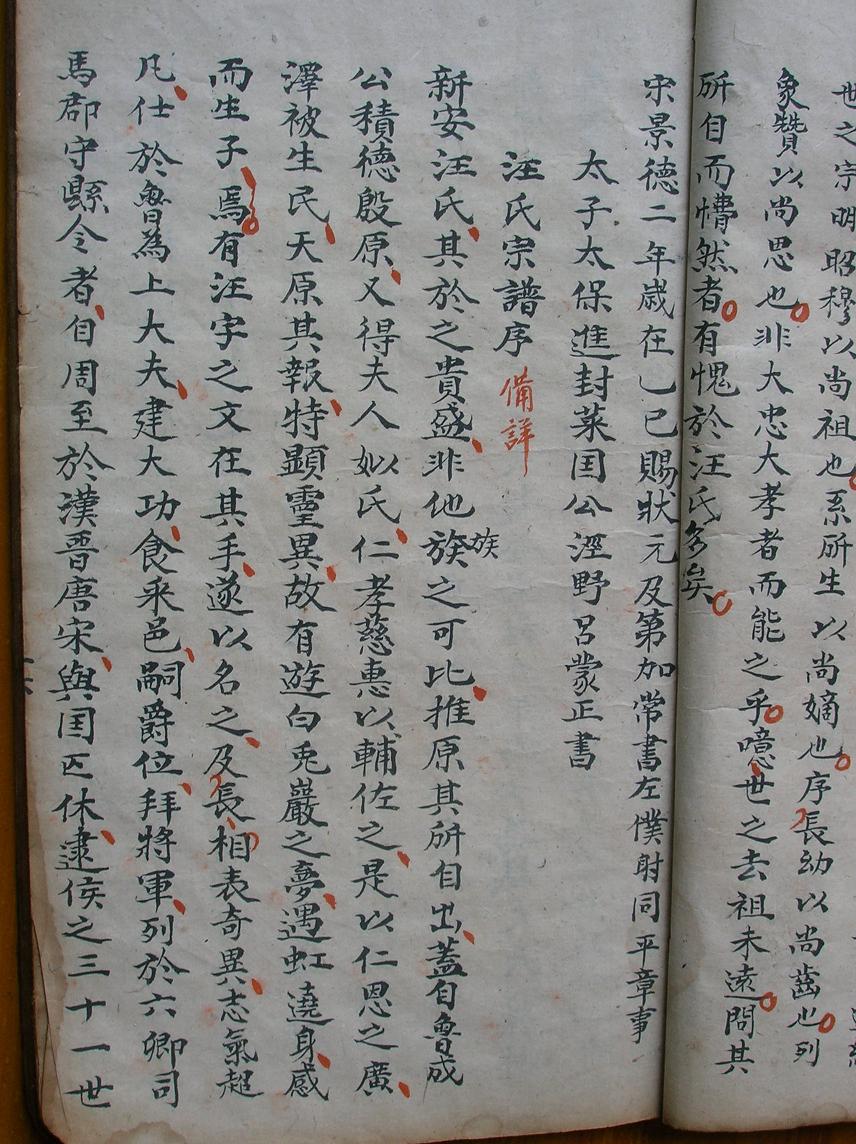 世之宗明昭穆以尚祖也系所生以尚嫡也序長幼以尚齒也列
象贊以尚思也非大忠大孝者而能之乎噫世之去祖未遠問其
所自而懵然者有愧於汪氏多矣
宋景德二年歲在乙巳賜狀元及第加常書左僕射同平章事
太子太保進封萊囯公涇野呂蒙正書
汪氏宗譜序 備詳
新安汪氏其於之貴盛非他族族之可比推原其所自出蓋自魯成
公積德殷原又得夫人姒氏仁孝慈惠以輔佐之是以仁恩之廣
澤被生民天原其報特顕靈異故有遊白兎巖之夢遇虹遶身感
而生子焉有汪字之文在其手遂以名之及長相表奇異志氣超
凡仕於魯為上大夫建大功食采邑嗣爵位拜將軍列於六卿司
馬郡守縣令者自周至於漢晋唐宋與囯匹休逮侯之三十一世